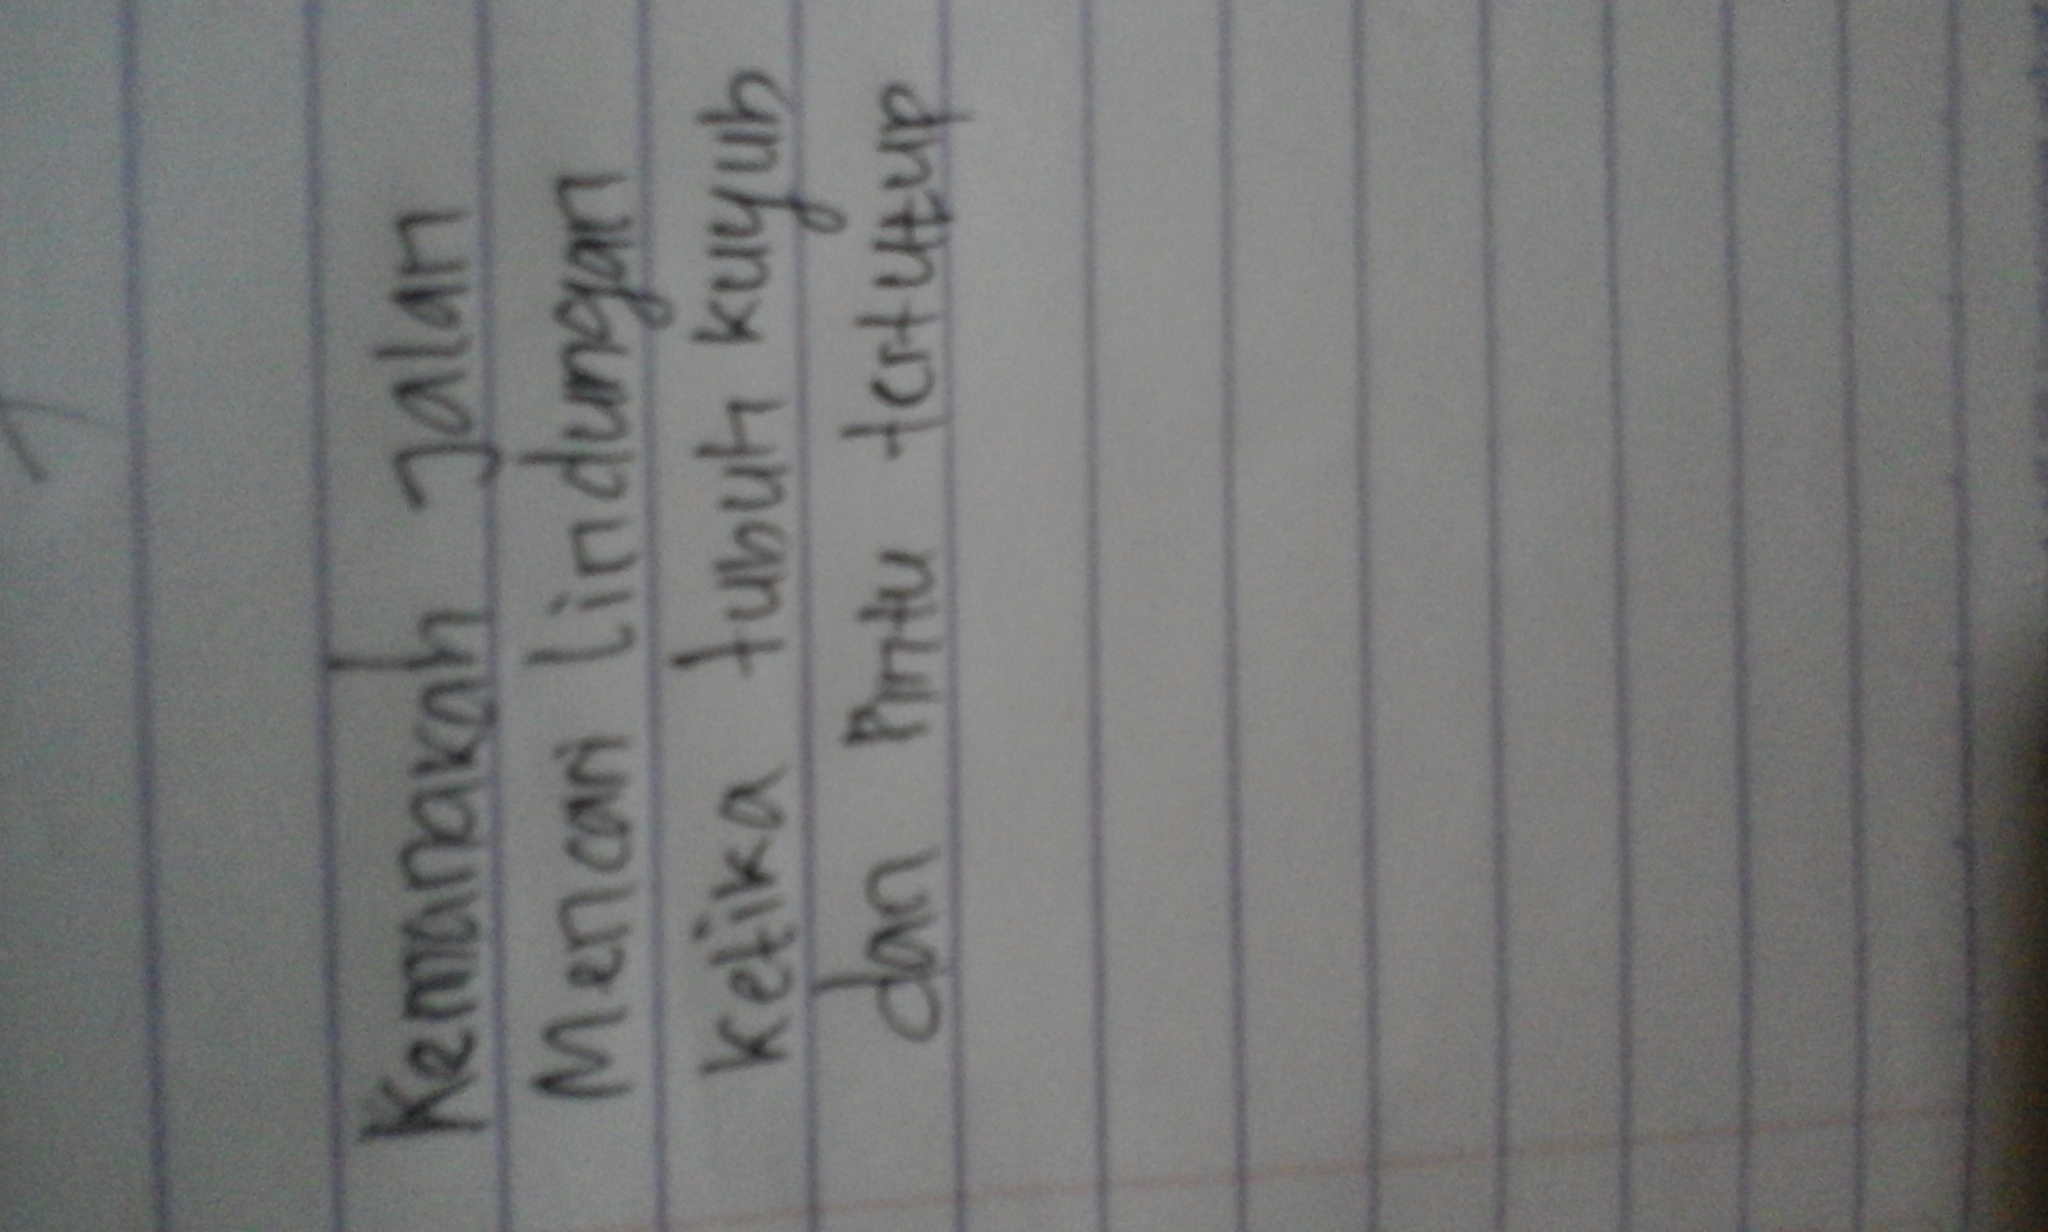 Kemanakah jalan
Mencari lindungan
Ketika tubuh kuyub
dan Pintu tertutup